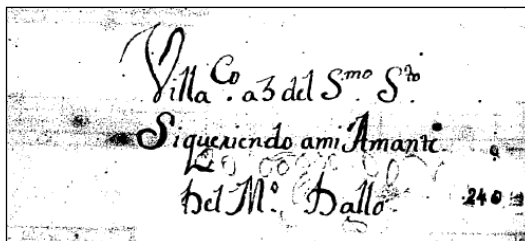 Villa.Co. a3 del S.mo S.to
Siqueriendo ami Amante.
Del M.o Dallo. 240